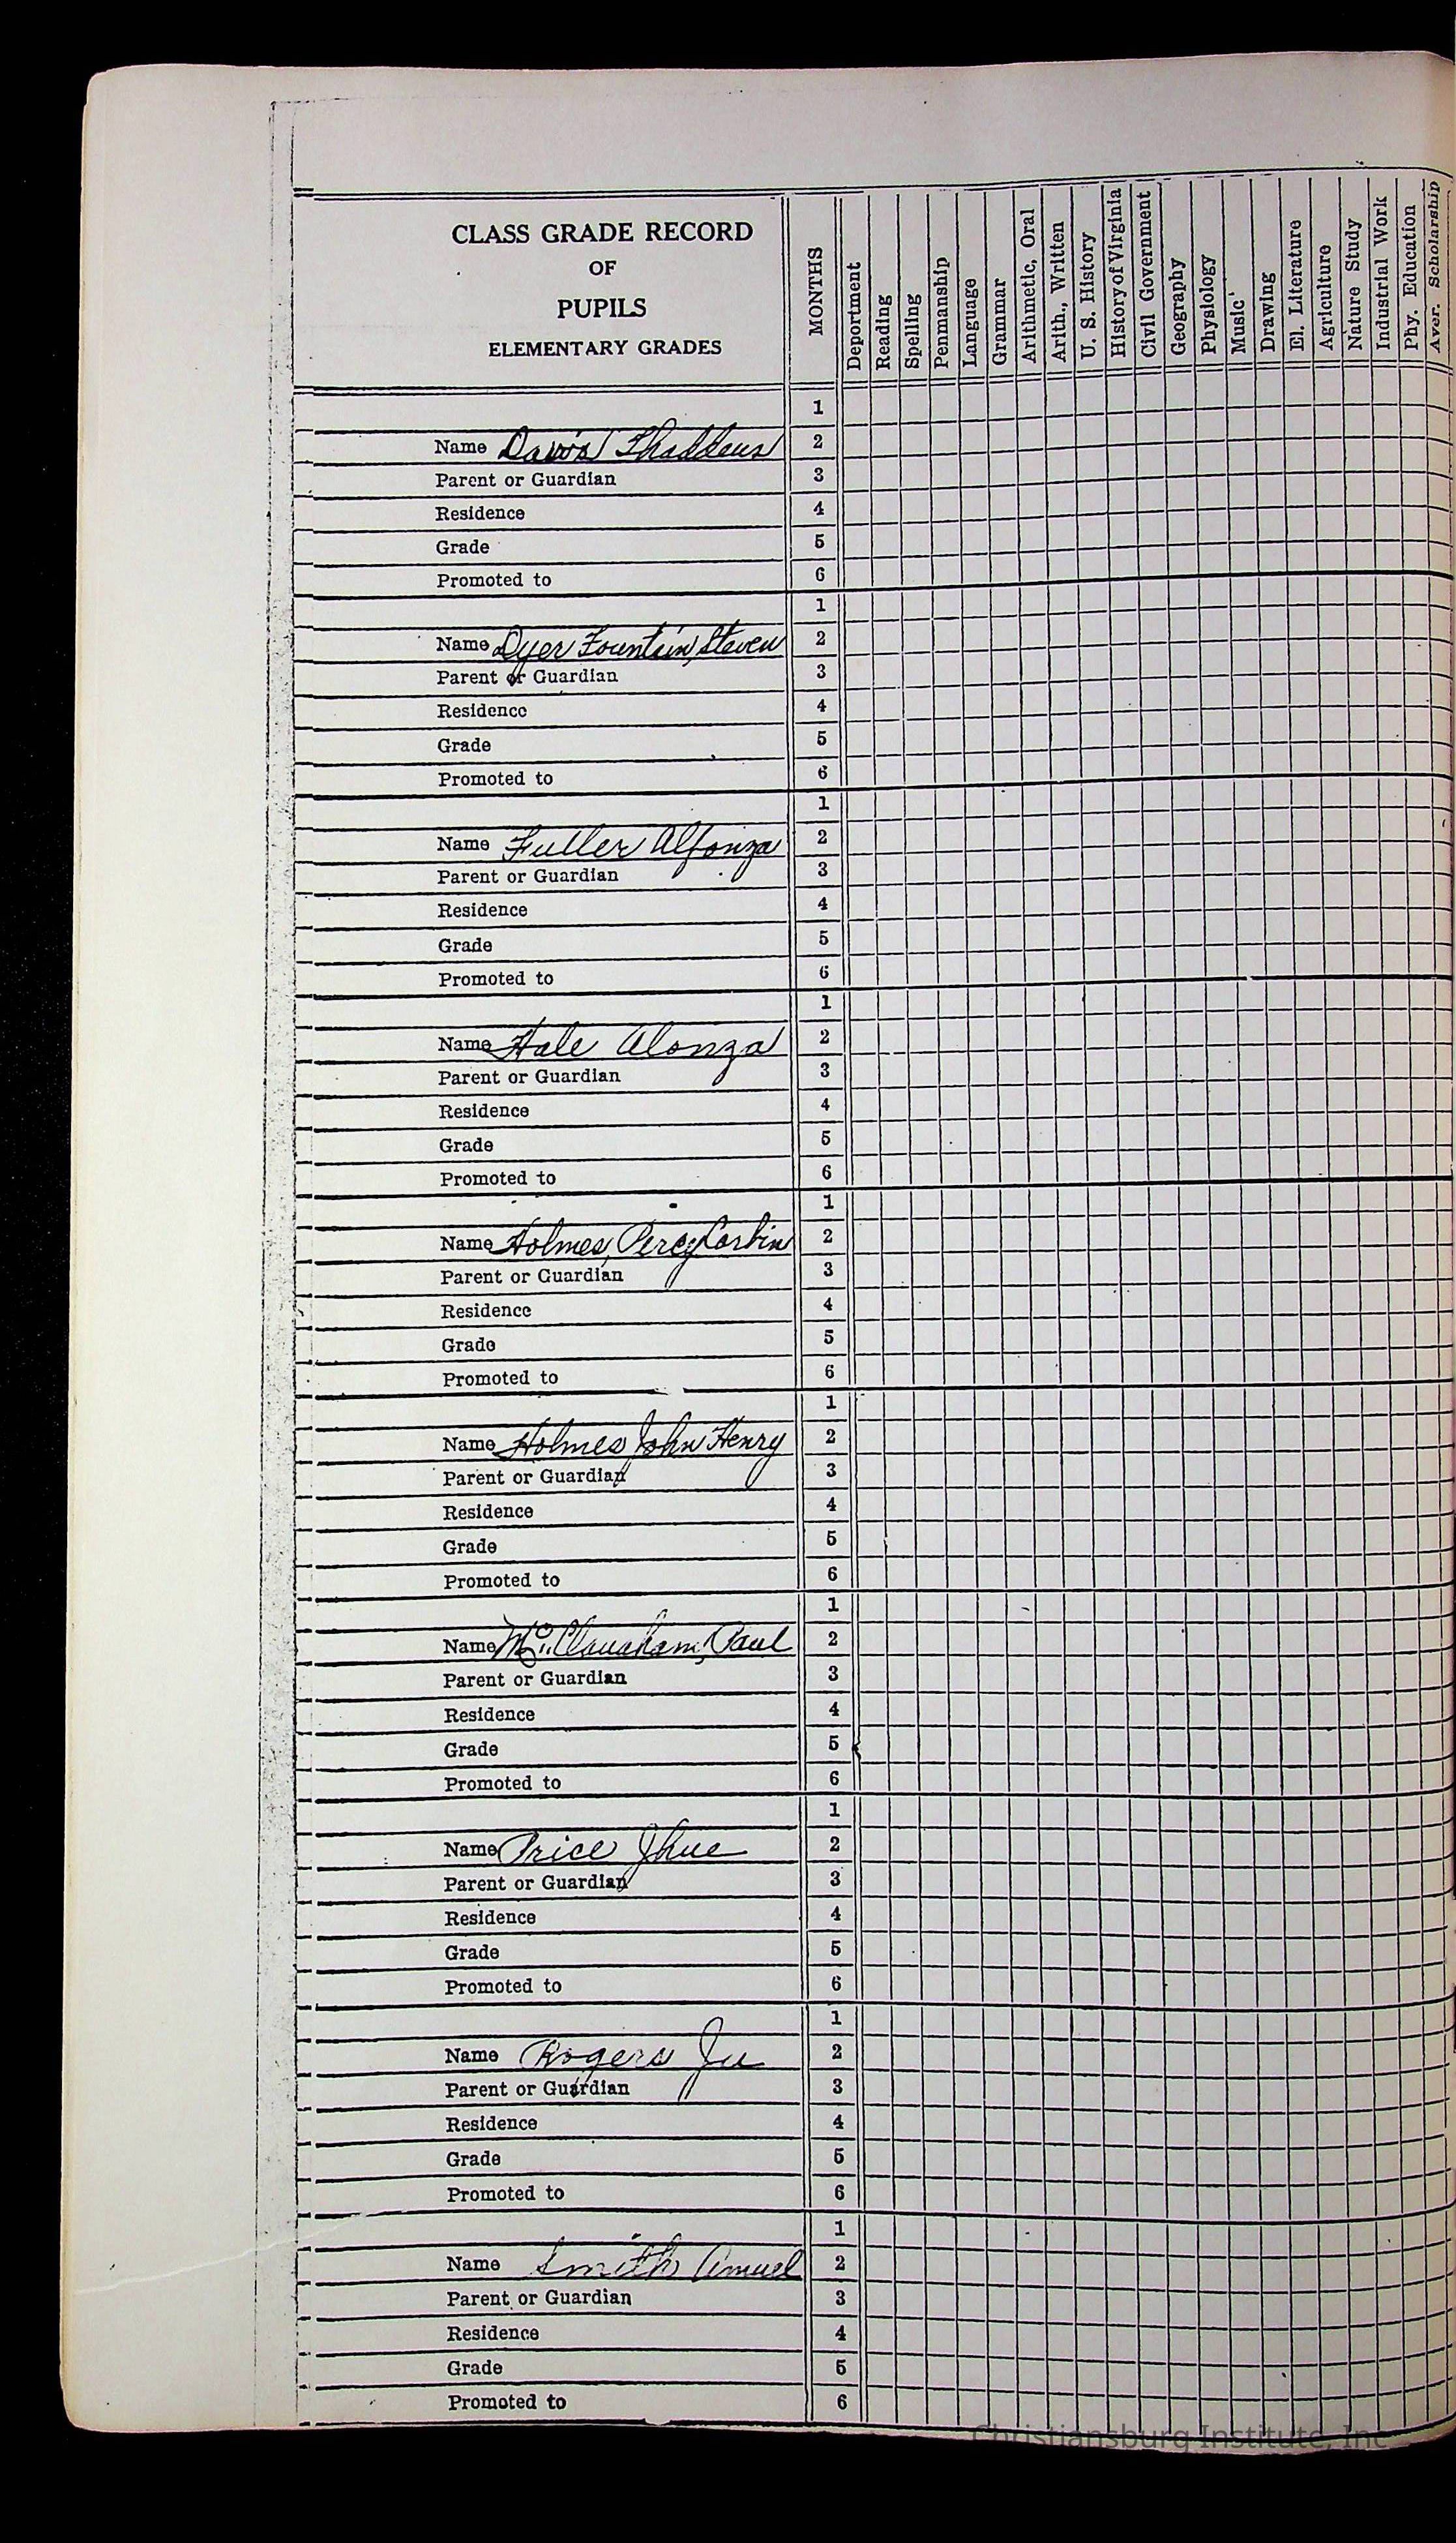 CLASS GRADE RECORD
OF
PUPILS
ELEMENTARY GRADES
MONTHS
Deportment
Reading
Spelling
Penmanship
Language
Grammar
Arithmetic, Oral
Arith., Written
U. S. History
History of Virginia
Civil Government
Geography
Physiology
Music
Drawing
El. Literature
Agriculture
Nature Study
Industrial Work
Phy. Education
Aver. Scholarship
1
Name Davis Thaddeus 2
Parent or Guardian 3
Residence 4
Grade 5
Promoted to 6
1
Name Dyer Fountain, Steven 2
Parent or Guardian 3
Residence 4
Grade 5
Promoted to 6
1
Name Fuller Alfonza 2
Parent or Guardian 3
Residence 4
Grade 5
Promoted to 6
1
Name Hale Alonza 2
Parent or Guardian 3
Residence 4
Grade 5
Promoted to 6
1
Name Holmes, Percy Corbin 2
Parent or Guardian 3
Residence 4
Grade 5
Promoted to 6
1
Name Holmes John Henry 2
Parent or Guardian 3
Residence 4
Grade 5
Promoted to 6
1
Name Mc.Clanaham, Paul 2
Parent or Guardian 3
Residence 4
Grade 5
Promoted to 6
1
Name Price 2
Parent or Guardian 3
Residence 4
Grade 5
Promoted to 6
1
Name Rogers 2
Parent or Guardian 3
Residence 4
Grade 5
Promoted to 6
1
Name Smith Amuel 2
Parent or Guardian 3
Residence 4
Grade 5
Promoted to 6
Christiansburg Institute, Inc